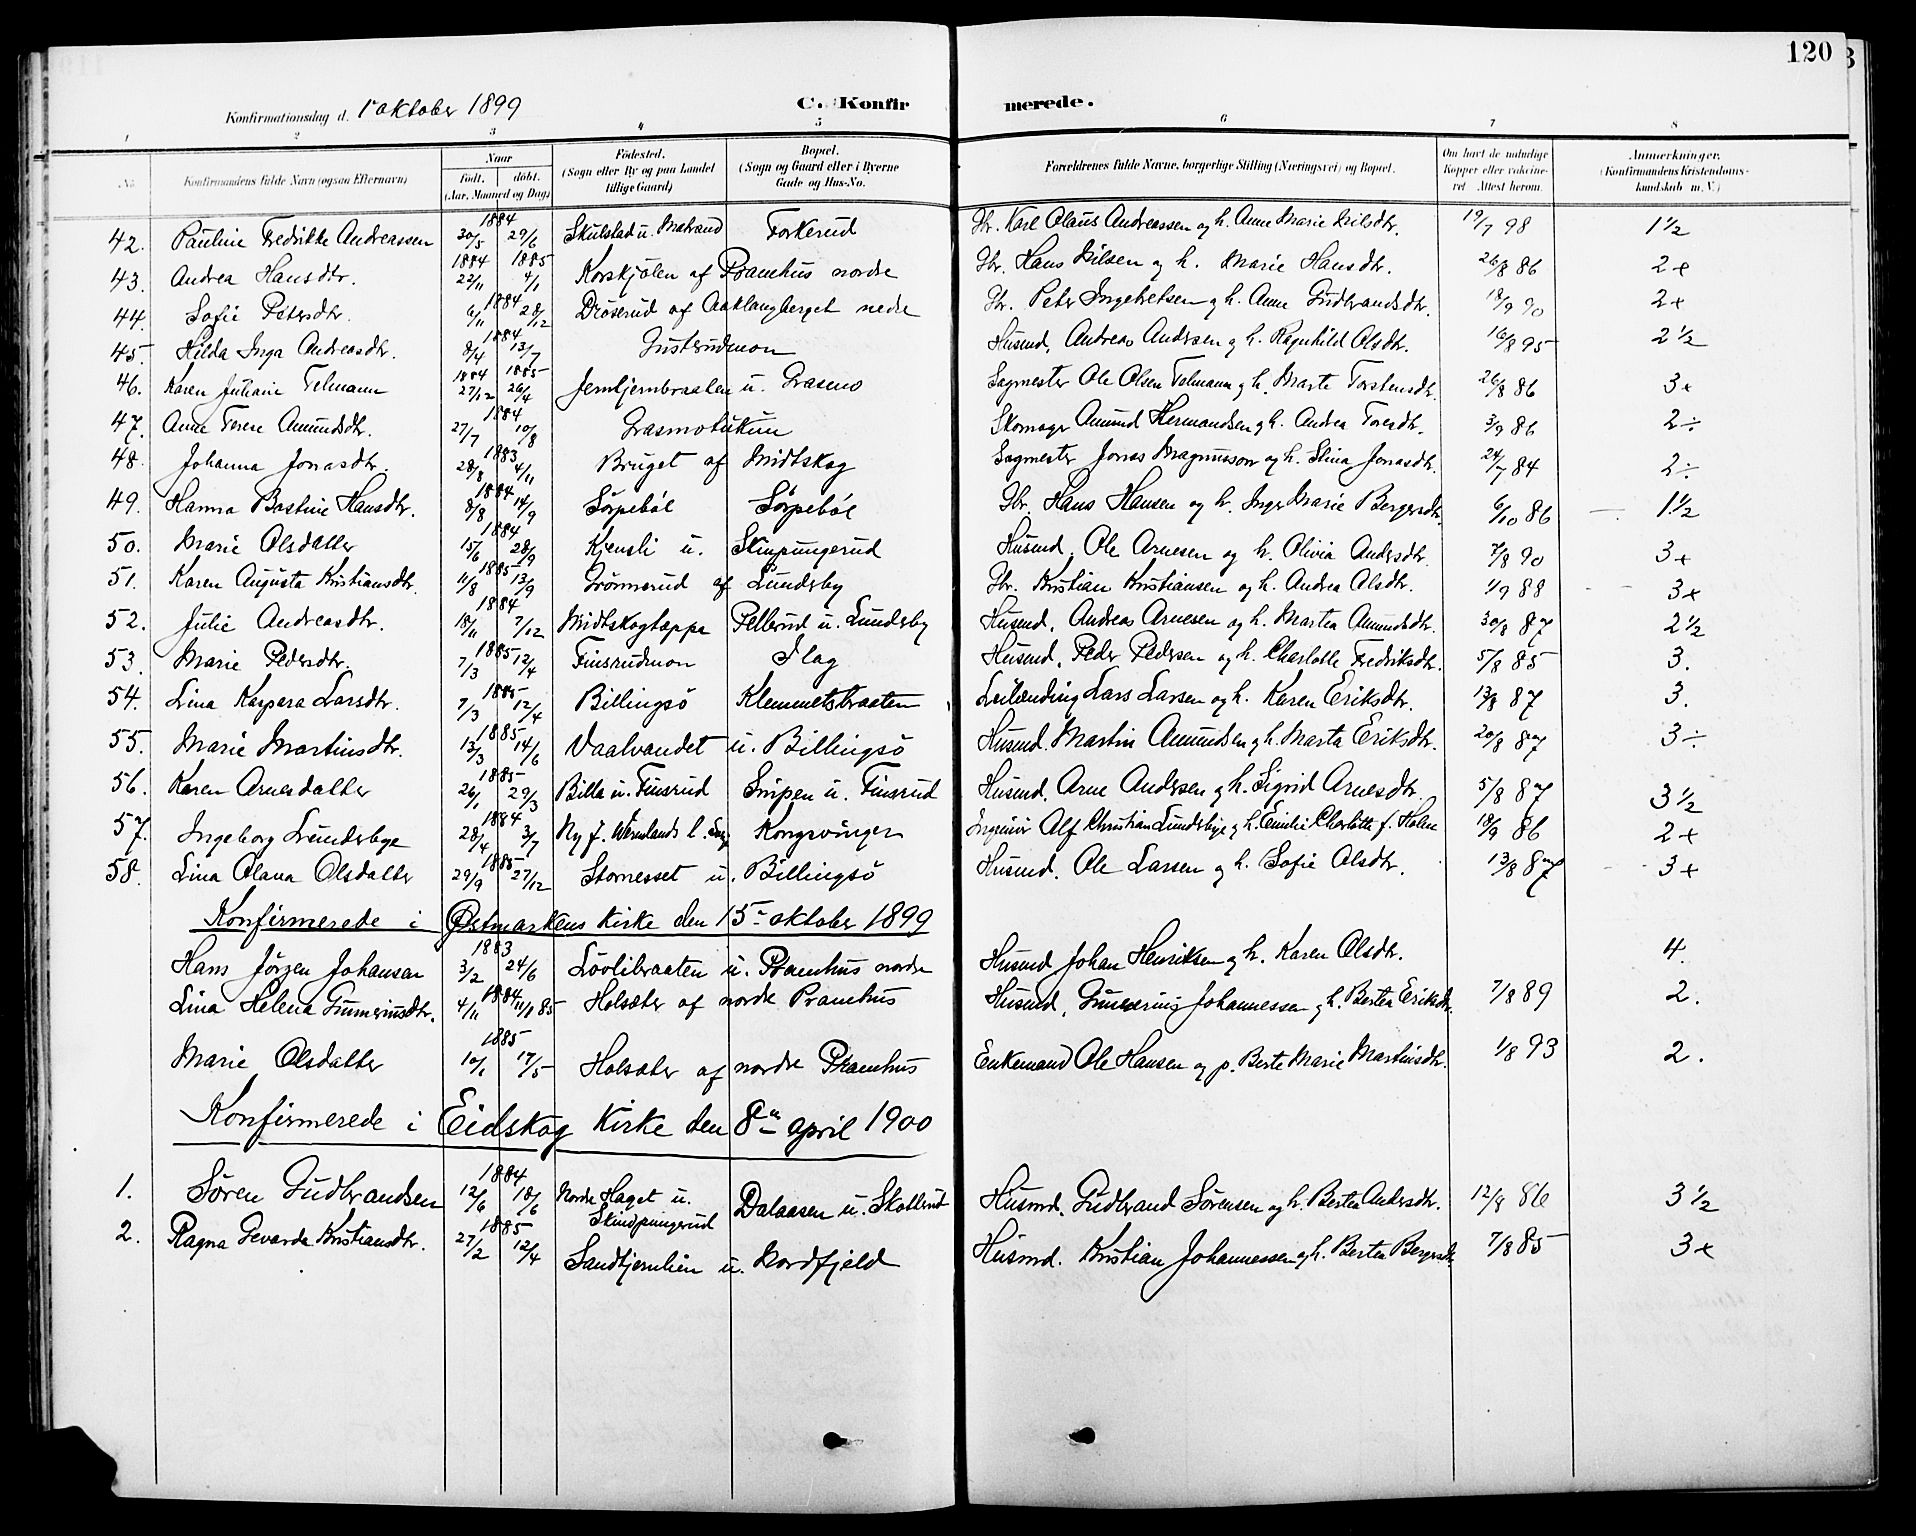 120
Konfirmationsdag d. 1 oktober 1899 C. Konfirmerede.
1 2 3 4 5 6 7 8
No. Konfirmandens fulde Navn (ogsaa Efternavn) Naar født, døbt. (Aar, Maaned og Dag) Fødested. (Sogn eller By og paa Landet tillige Gaard) Bopæl. (Sogn og Gaard eller i Byerne Gade og Hus-No. Forældrenes fulde Navne, borgerlige Stilling (Næringsvei) og Bopæl. Om havt de naturlige Kopper eller vaccineret. Attest herom. Anmærkninger. (Konfirmandens Kristendomskundskab m. V.)
42. Pauline Fredrikke Andreassen 1884 30/5 29/6 Skulstad u. Matrand Forkerud Gbr. Karl Olaus Andreassen og h. Anne Marie Nilsdtr. 19/7 98 1½
43. Andrea Hansdtr. 1884 22/11 1885 4/1 Korskjølen af Pramhus nordre Gbr. Hans Nilsen og h. Marie Hansdtr. 26/8 86 2+
44. Sofie Petersdtr. 1884 6/11 28/12 Drøserud af Aaklangberget nedre Gbr. Peter Ingebretsen og h. Anne Gudbrandsdtr. 18/9 90 2+
45. Hilda Inga Andreasdtr. 1884 8/4 13/7 Gusterudmon Husmd. Andreas Andersen og h. Ragnhild Olsdtr. 16/8 95 2½
46. Karen Juliane Telmann 1884 27/12 1885 26/4 Jerntjernbraaten u. Grasmo Sagmester Ole Olsen Telmann og h. Marte Torstensdtr. 26/8 86 3+
47. Anne Terese Amundsdtr. 1884 27/7 10/8 Grasmotukun Skomager Amund Hermandsen og h. Andrea Toresdtr. 3/9 86 2÷
48. Johanna Jonasdtr. 1883 28/8 4/11 Bruget af Midtskog Sagmester Jonas Magnusson og h. Stina Jonasdtr. 24/7 84 2÷
49. Hanna Bastine Hansdtr. 1884 8/8 14/9 Sørpebøl Sørpebøl Gbr. Hans Hansen og h. Inger Marie Bergersdtr. 6/10 86 1½
50. Marie Olsdatter 1884 15/6 28/9 Kjensli u. Skinpungerud Husmd. Ole Arnesen og h. Olivia Andersdtr. 7/8 90 3+
51. Karen Augusta Kristiansdtr. 1885 11/8 13/9 Grønnerud af Lundsby Gbr. Kristian Kristiansen og h. Andrea Olsdtr. 1/9 88 3+
52. Julie Andreasdtr. 1884 18/11 7/12 Midtskogtæppa Pellerud u. Lundsby Husmd. Andreas Arnesen og h. Martea Amundsdtr. 30/8 87 2½
53. Marie Pedersdtr. 1885 7/3 12/4 Finsrudmon Flag Husmd. Peder Pedersen og h. Charlotte Fredriksdtr. 5/8 85 3.
54. Lina Kaspara Larsdtr. 1885 7/3 12/4 Billingsø Klemmetsbraaten Leilænding Lars Larsen og h. Karen Eriksdtr. 13/8 87 3.
55. Marie Martinsdtr. 1885 13/3 14/6 Vaalvandet u. Billingsø Husmd. Martin Amundsen og h. Marta Eriksdtr. 20/8 87 3÷
56. Karen Arnesdatter 1885 26/1 29/3 Billa u. Finsrud Snipen u. Finsrud Husmd. Arne Andersen og h. Sigrid Arnesdtr. 5/8 87 3½
57. Ingeborg Lundsbye 1884 28/4 3/7 Ny f. Wermlands l. Kongsvinger Ingeniør Alf Christian Lundsbye og h. Emilie Charlotte f. Holm 18/9 86 2+
58. Lina Olava Olsdatter 1885 29/9 27/12 Stomesset u. Billingsø Husmd. Ole Larsen og h. Sofie Olsdtr. 13/8 87 3+
Konfirmerede i Østmarkens Kirke den 15de oktober 1899
Hans Jørgen Johansen 1883 3/2 24/6 Løvlibraaten u. Pramhus nordre Husmd Johan Henriksen og h. Karen Olsdtr. 4.
Lina Helena Gunneriusdtr. 1884 4/11 11/1 85 Holsæter af nordre Pramhus Husmd. Gunnerius Johannessen og h. Bertea Eriksdtr. 7/8 89 2.
Marie Olsdatter 1885 10/1 17/5 Holsæter af nordre Pramhus Enkemand Ole Hansen og p. Berte Marie Martinsdtr. 1/8 93 2.
Konfirmerede i Eidskog Kirke den 8de april 1900
1. Søren Gudbrandsen 1884 12/6 18/6 Nordre Haget u. Skindpungerud Dalaasen u. Skotterud Husmd. Gudbrand Sørensen og h. Bertea Andersdtr. 12/8 86 3½
2. Ragna Gevarda Kristiansdtr. 1885 27/2 12/4 Sandtjernlien u. Nordfjeld Husmd. Kristian Johannessen og h. Bertea Bergersdtr. 7/8 85 3+